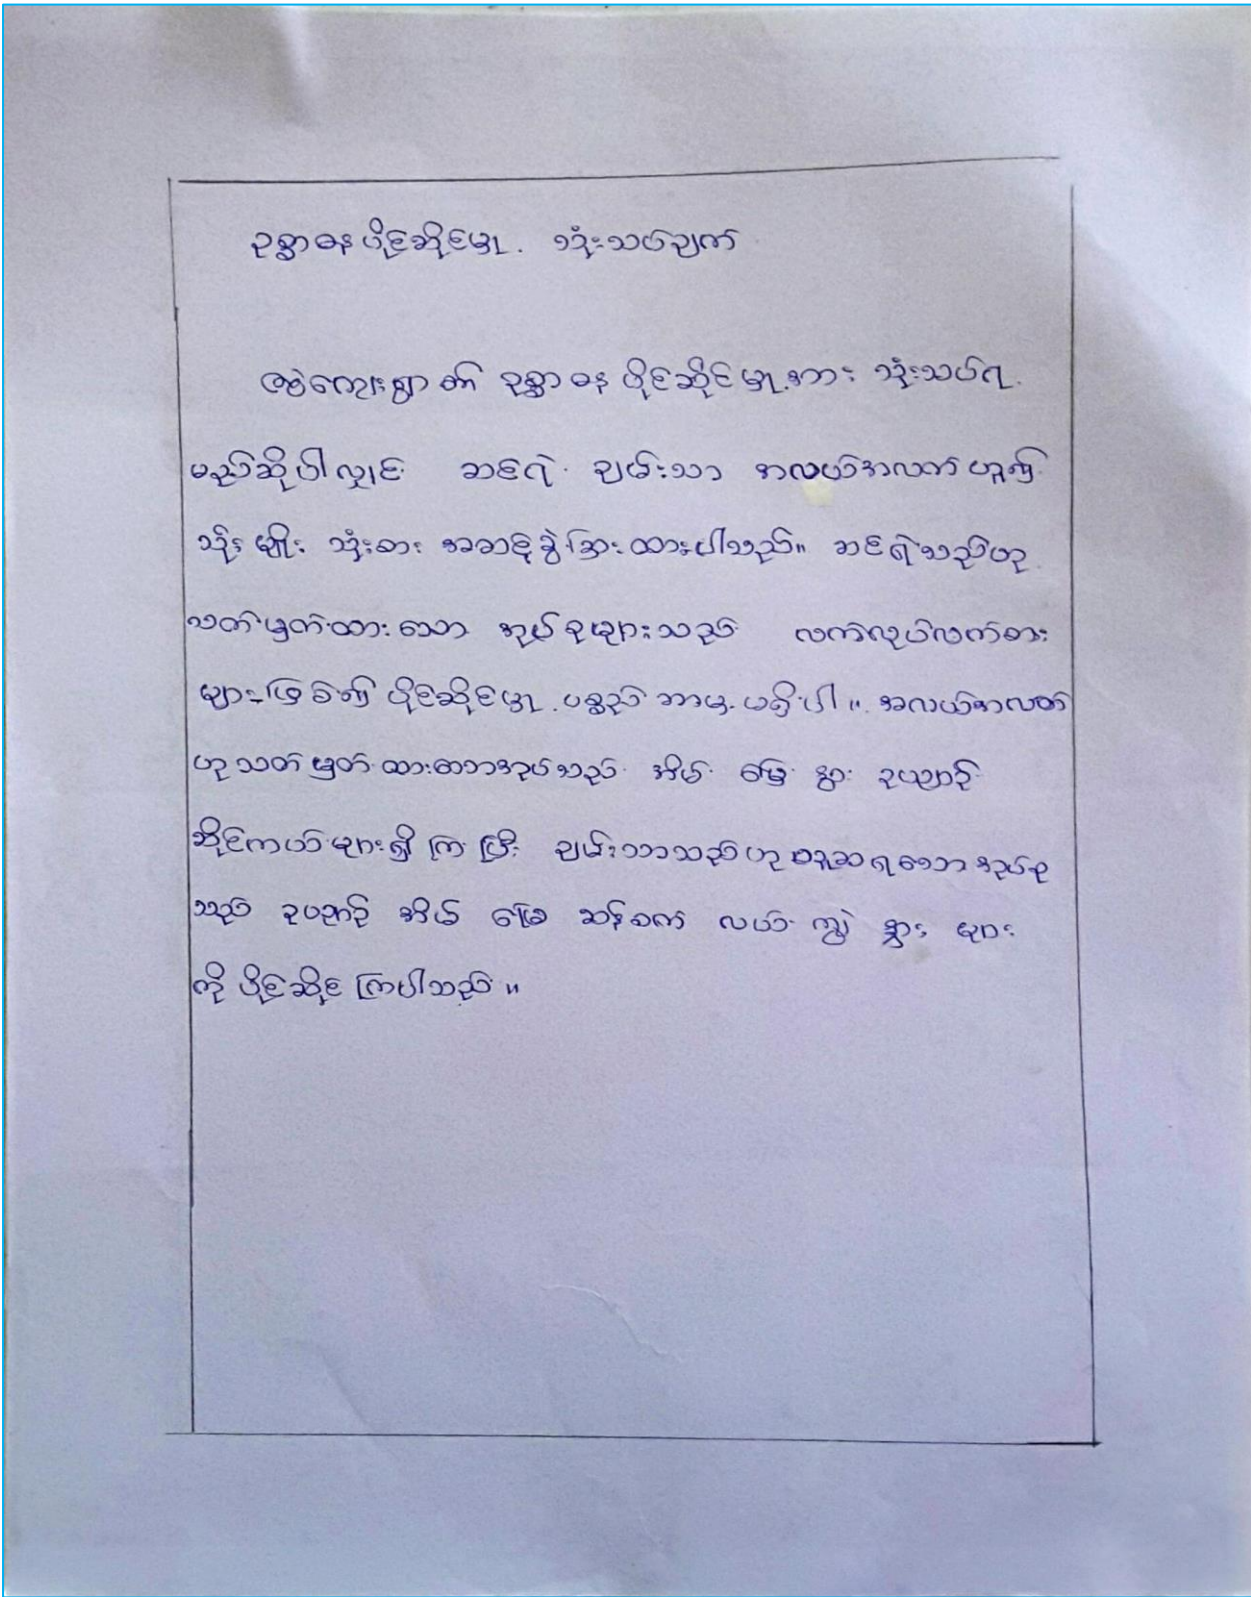 ဥစ္စာဓနပိုင်ဆိုင်မှု သုံးသပ်ချက်
ကျေးရွာ၏ ဥစ္စာဓန ပိုင်ဆိုင်မှုအား သုံးသပ်ရ
မည်ဆိုပါလျှင် ဆင်းရဲ ချမ်းသာ အလယ်အလတ်ဟူ၍
သုံးမျိုး သုံးစား အဆင့်ခွဲခြားထားပါသည်။ ဆင်းရဲသည်ဟု
သတ်မှတ်ထားသော အုပ်စုများသည် လက်လုပ်လက်စား
များဖြစ်၍ ပိုင်ဆိုင်မှု ပစ္စည်း ဘာမှ မရှိပါ။ အလယ်အလတ်
ဟုသတ်မှတ်ထားသောအုပ်စုသည် အိမ် မြေ နွား ဥယျာဉ်
ဆိုင်ကယ်များရှိကြပြီး ချမ်းသာသည်ဟု ယူဆရသောအုပ်စု
သည် ဥယျာဉ် အိမ် မြေ ဆန်စက် လယ် ကျွဲ နွား များ
ကို ပိုင်ဆိုင်ကြပါသည်။